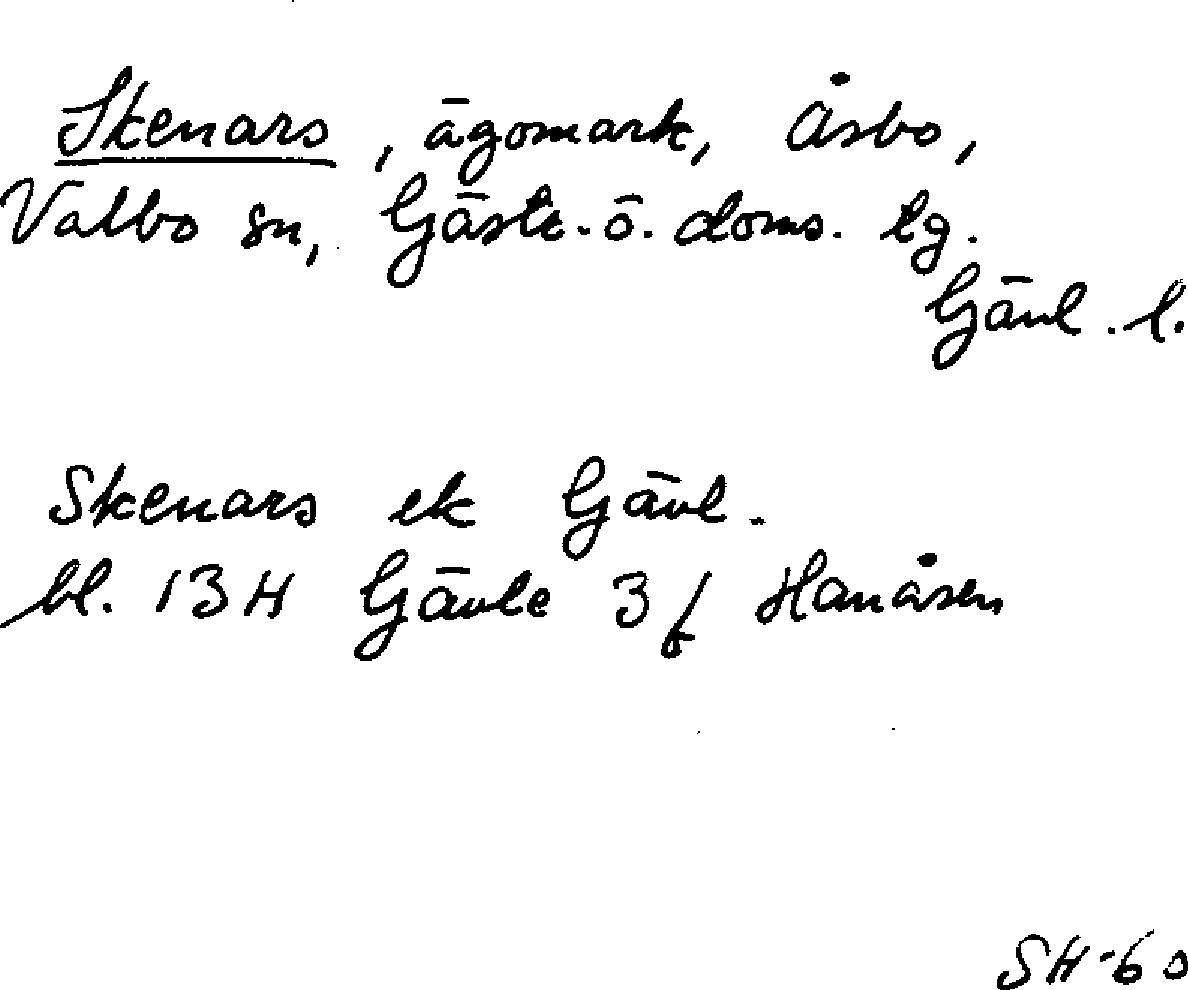 Skenars, ägomark, Åsbo,
Valbo sn, Gästr.ö. doms. tg.
Gävl. l.
Skenars ek Gävl.
bl. 13 H Gävle 3 f Hanåsen
SH-60